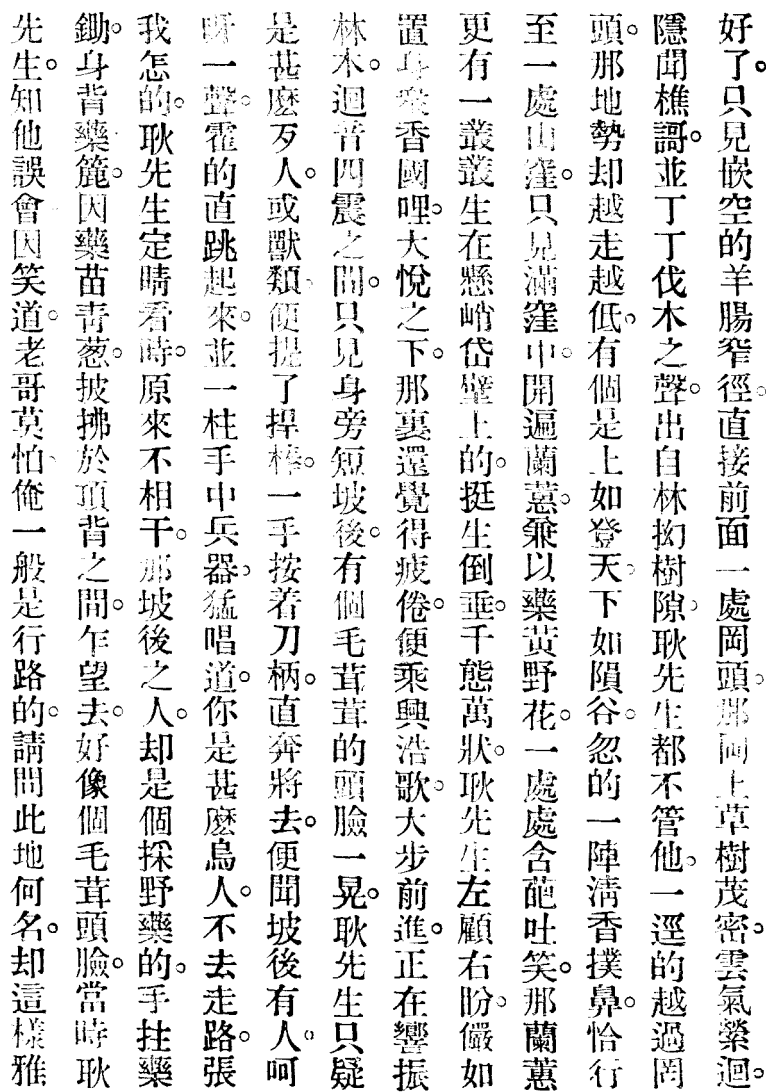 好了。只見嵌空的羊腸窄徑。直接前面一處岡頭。那岡上草樹茂密。雲氣縈迴。
隱聞樵謌。並丁丁伐木之聲。出自林抝樹隙。耿先生都不管他。一逕的越過岡
頭。那地勢却越走越低。有個是上如登天。下如隕谷。忽的一陣清香撲鼻。恰行
至一處山窪。只見滿窪中。開遍蘭蕙。兼以藥苗野花。一處處含葩吐笑。那蘭蕙
更有一叢叢生在懸峭岱壁上的。挺生倒垂。千態萬狀。耿先生左顧右盼。儼如
置身衆香國哩。大悅之下。那裏還覺得疲倦。便乘興浩歌。大步前進。正在響振
林木。迴音四震之間。只見身旁短坡後。有個毛茸茸的頭臉一晃。耿先生只疑
是甚麽歹人。或獸類。便提了捍棒。一手按着刀柄。直奔將去。便聞坡後有人。呵
呀一聲。霍的直跳起來。並一柱手中兵器。猛唱道。你是甚麽鳥人。不去走路。張
我怎的。耿先生定睛看時。原來不相干。那坡後之人。却是個採野藥的。手拄藥
鋤。身背藥箆。因藥苗靑葱。披拂於項背之間。乍望去。好像個毛茸頭臉。當時耿
先生。知他誤會。因笑道。老哥莫怕。俺一般是行路的。請問此地何名。却這樣雅